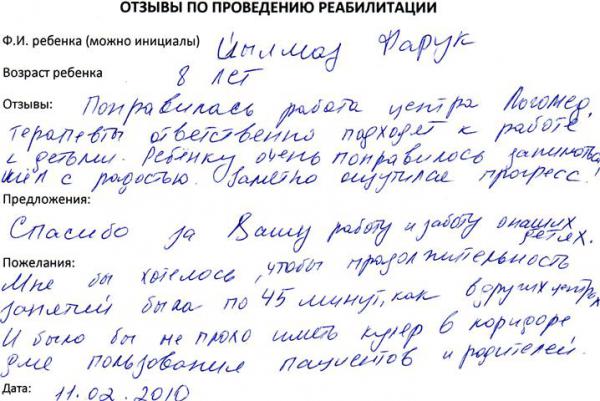 ОТЗЫВЫ ПО ПРОВЕДЕНИЮ РЕАБИЛИТАЦИИ
Ф.И. ребенка (можно инициалы) Йылмаз Фарук
Возраст ребенка 8 лет
Отзывы: Понравилась работа центра Логомед,
терапевты ответственно подходят к работе
с детьми. Ребёнку очень понравилось заниматься
шёл с радостью. Заметно ощутился прогресс!
Предложения:
Спасибо за Вашу работу и заботу о наших
детях.
Пожелания:
Мне бы хотелось, чтобы продолжительность
занятий была по 45 минут, как в других центрах
И было бы не плохо иметь кулер в коридоре
для пользования пациентов и родителей.
Дата: 11.02.2010